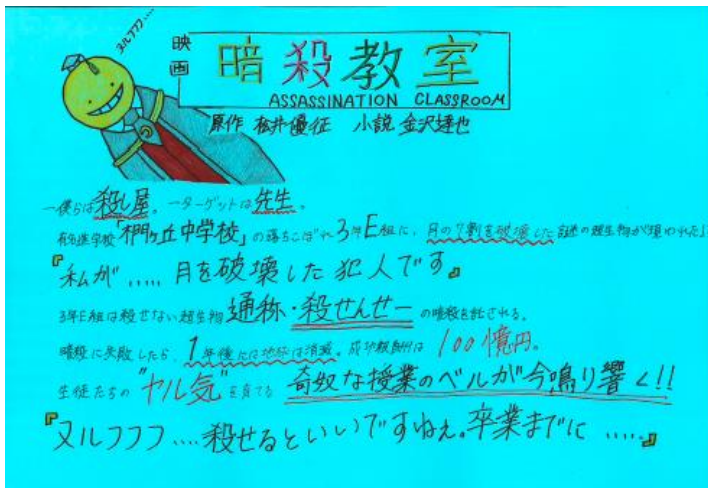 ヌルフフフ....
映画 暗殺教室
ASSASSINATION CLASSROOM
原作 松井優征 小説 金沢達也
―僕らは殺し屋。―ターゲットは先生。
有名進学校「椚ヶ丘中学校」の落ちこぼれ3年E組に、月の7割を破壊した謎の超生物が現われた!
『私が..... 月を破壊した犯人です』
3年E組は殺せない超生物 通称・殺せんせー の暗殺を託される。
暗殺に失敗したら、1年後には地球は消滅。成功報酬は 100億円。
生徒たちの "ヤル気" を育てる 奇奴な授業のベルが今鳴り響く!!
『ヌルフフフ....殺せるといいですねぇ。卒業までに .....』